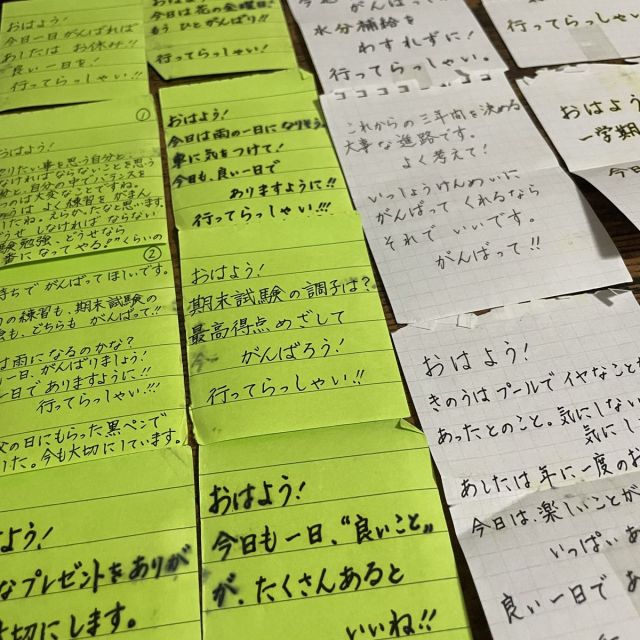 おはよう!
今日一日がんばれば
あしたは お休み!!
良い一日を!
行ってらっしゃい!!!
おはよう!
今日は花の金曜日!
もう ひとがんばり!!
行ってらっしゃい!!
水分補給を
わすれずに!
行ってらっしゃい。
行ってらっしゃい
①
おはよう!
おはよう!
今日は雨の一日になりそう。
車に気をつけて!
今日も、良い一日で
ありますように!!
行ってらっしゃい!!!
これからの三年間を決める
大事な進路です。
よく考えて!
いっしょうけんめいに
がんばってくれるなら
それで いいです。
がんばって!!
おはよう
一学期
今日
②
持ちで がんばってほしいです。
の練習も、期末試験の
も、どちらも がんばって!!
は雨になるのかな?
一日、がんばりましょう!
一日でありますように!!
行ってらっしゃい!!!
父の日にもらった黒ペンで
した。今も大切にしています。
おはよう!
期末試験の調子は?
最高得点めざして
がんばろう!
行ってらっしゃい!!!
おはよう!
きのうはプールでイヤなことが
あったとのこと。気にしない
気にし
あしたは年に一度のお
今日は、楽しいことが
いっぱいあ
良い一日で あ
よう!
なプレゼントをありが
切にします。
おはよう!
今日も一日、“良いこと„
が、たくさんあると
いいね!!